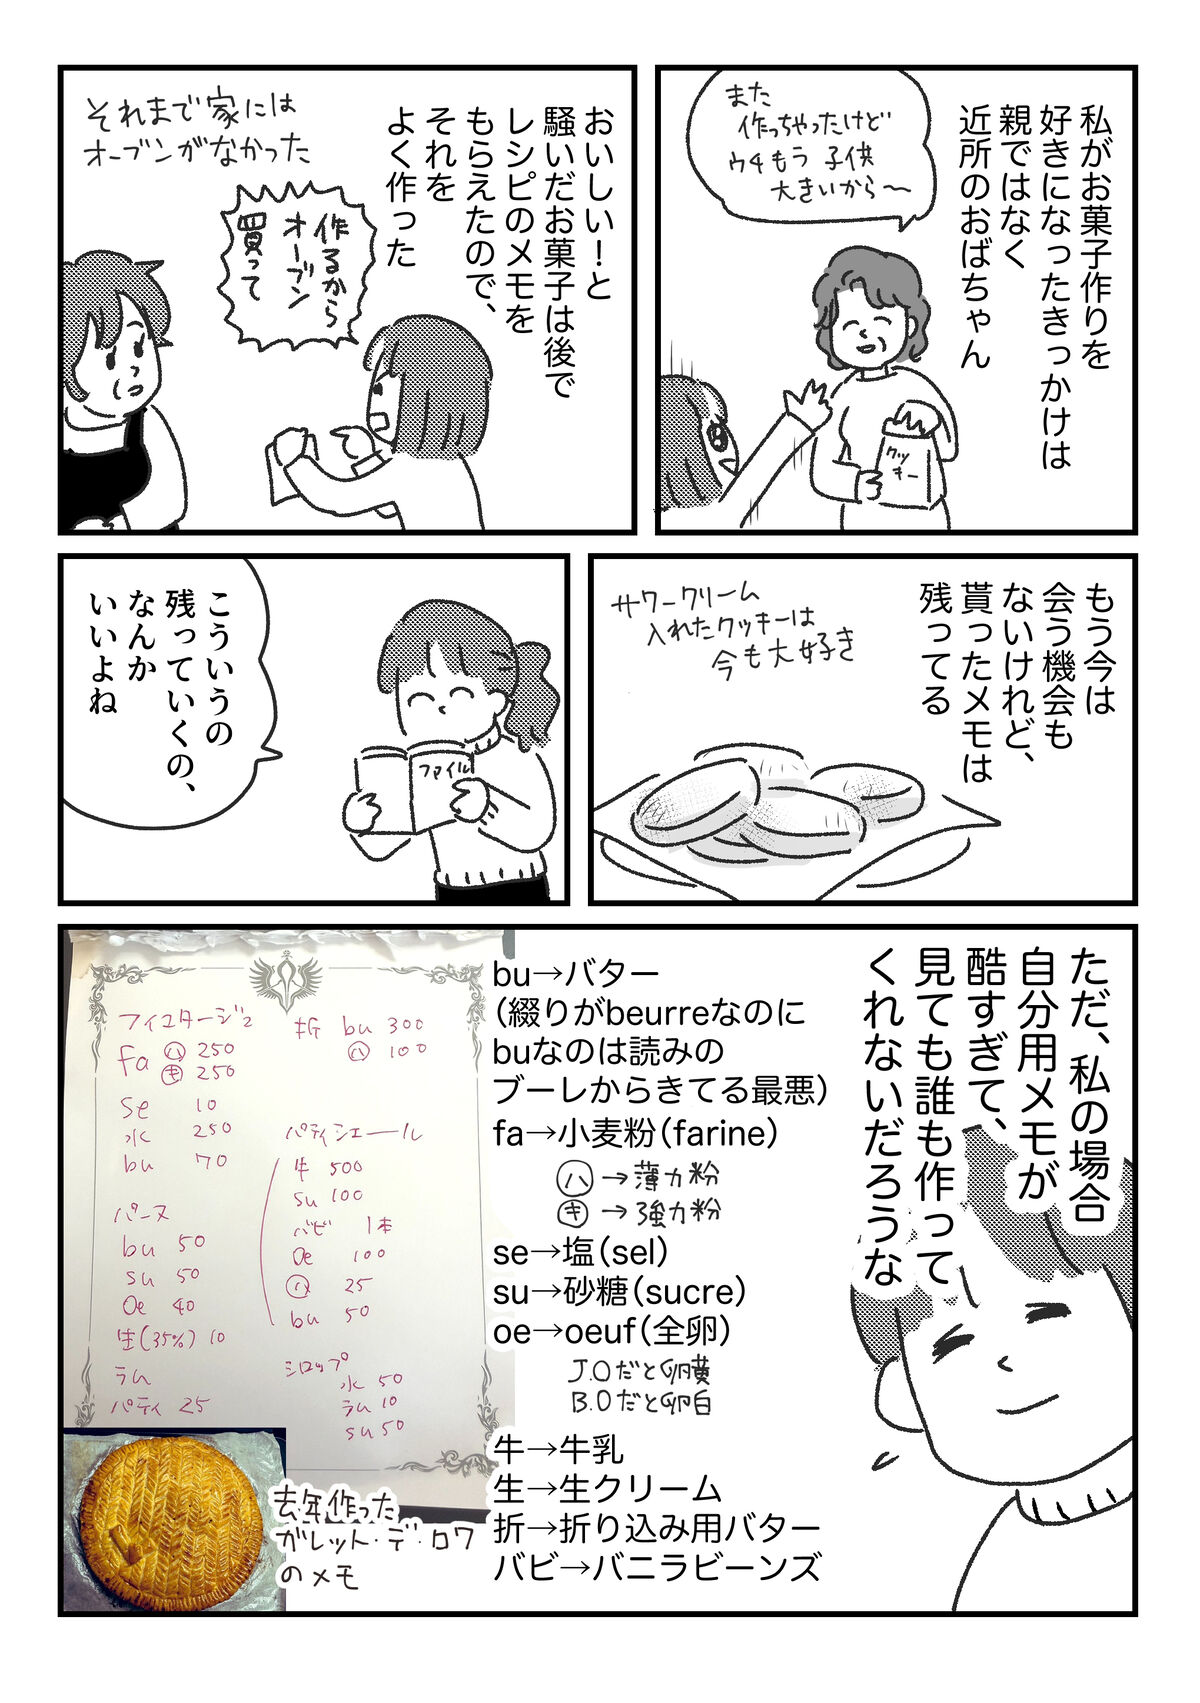 私がお菓子作りを
好きになったきっかけは
親ではなく
近所のおばちゃん
また
作っちゃったけど
ウチもう子供
大きいから〜
クッ
キー
おいしい！と
騒いだお菓子は後で
レシピのメモを
もらえたので、
それを
よく作った
それまで家には
オーブンがなかった
作るから
オーブン
買って
もう今は
会う機会も
ないけれど、
貰ったメモは
残ってる
サワークリーム
入れたクッキーは
今も大好き
こういうの
残っていくの、
なんか
いいよね
ファイル
ただ、私の場合
自分用メモが
酷すぎて、
見ても誰も作って
くれないだろうな
bu→バター
（綴りがbeurreなのに
buなのは読みの
ブーレからきてる最悪）
fa→小麦粉（farine）
ハ→薄力粉
キ→強力粉
se→塩（sel）
su→砂糖（sucre）
oe→oeuf（全卵）
J.Oだと卵黄
B.Oだと卵白
牛→牛乳
生→生クリーム
折→折り込み用バター
バビ→バニラビーンズ
フイユタージュ
fa ハ 250
キ 250
se 10
水 250
bu 70
折 bu 300
ハ 100
パーヌ
bu 50
su 50
oe 40
生(35%) 10
ラム
パティ 25
パティシエール
牛 500
su 100
バビ 1本
oe 100
ハ 25
bu 50
シロップ
水 50
ラム 10
su 50
去年作った
ガレット・デ・ロワ
のメモ